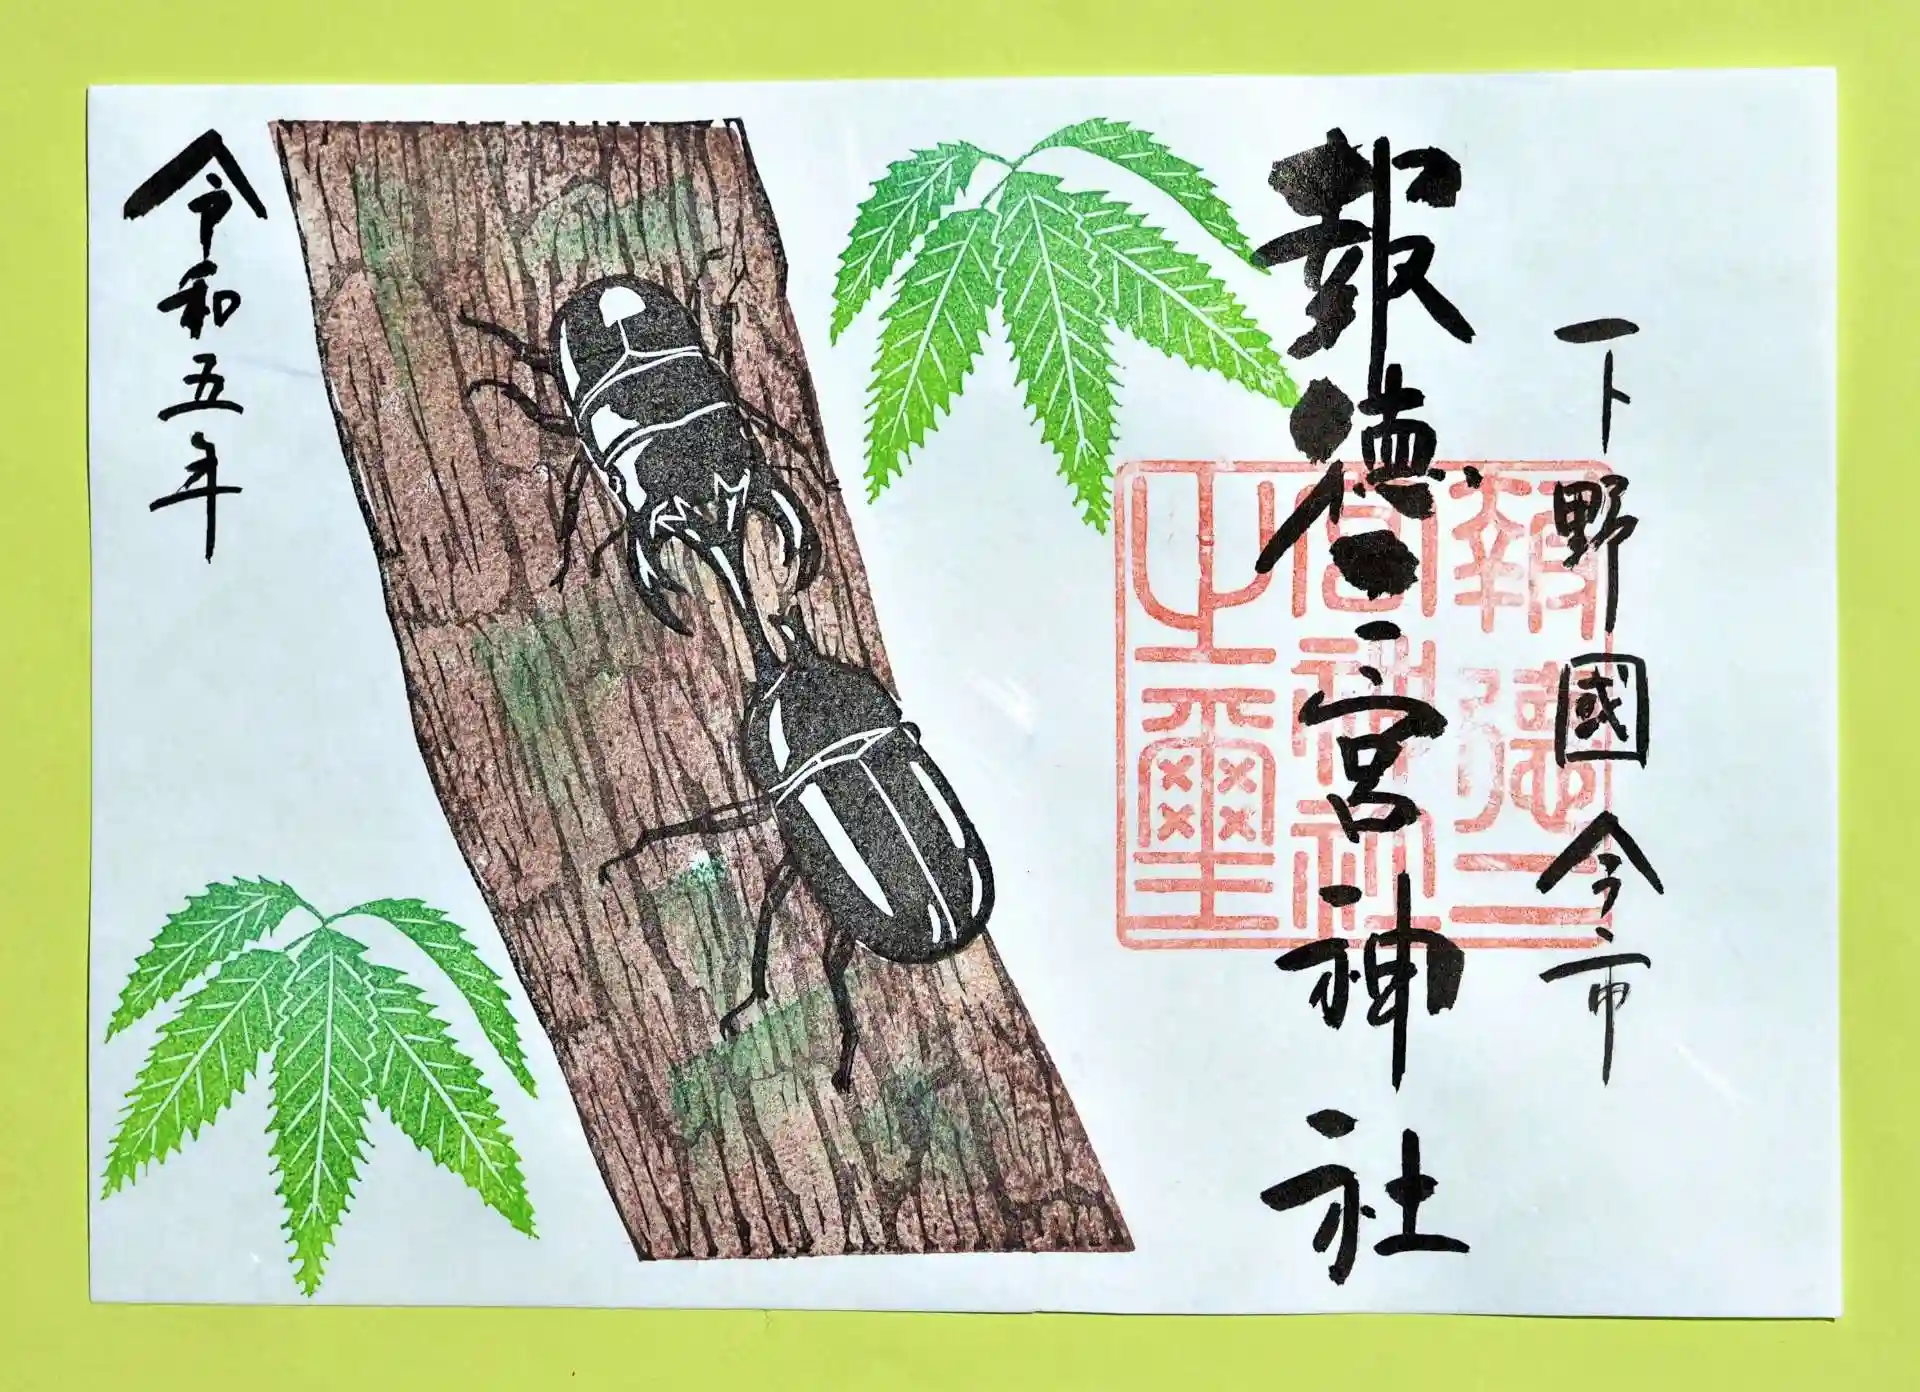 下野國今市
報徳二宮神社
報徳二
宮神社
之璽
令和五年